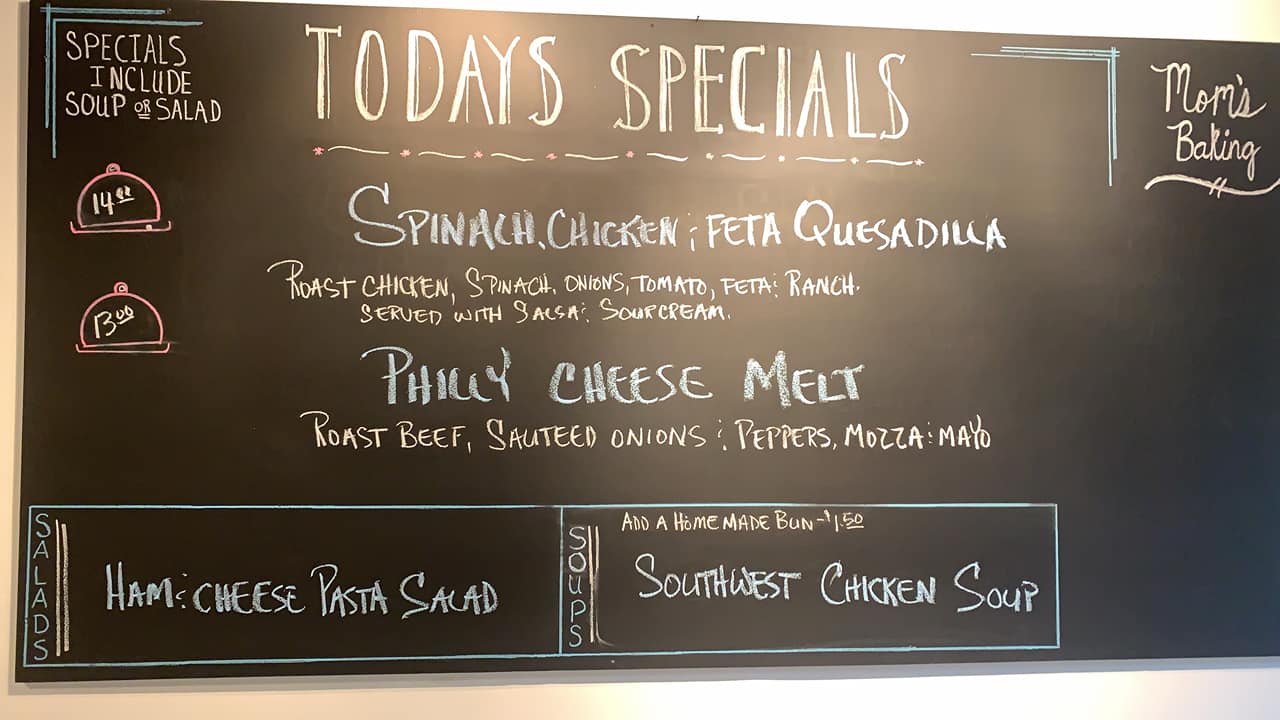 SPECIALS
INCLUDE
SOUP OR SALAD
TODAYS SPECIALS
Mom's
Baking
14.00
SPINACH, CHICKEN & FETA QUESADILLA
ROAST CHICKEN, SPINACH, ONIONS, TOMATO, FETA & RANCH.
SERVED WITH SALSA & SOURCREAM.
13.00
PHILLY CHEESE MELT
ROAST BEEF, SAUTEED ONIONS & PEPPERS, MOZZA & MAYO
SALADS
HAM & CHEESE PASTA SALAD
SOUPS
ADD A HOMEMADE BUN - $1.50
SOUTHWEST CHICKEN SOUP